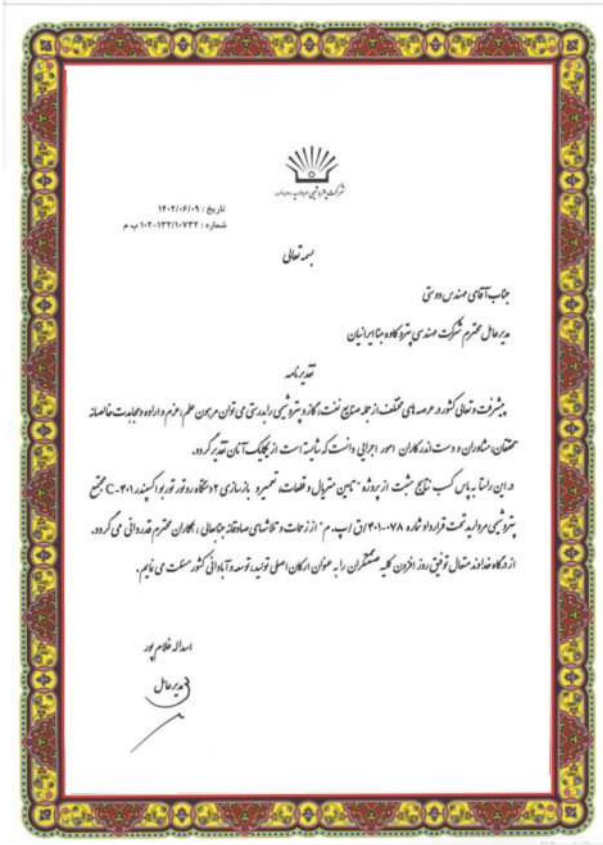 شرکت پتروشیمی مروارید
تاریخ : ۱۴۰۲/۰۶/۰۹
شماره : ۱۰۲-۱۳۲/۱۰۷۳۲ ب م
بسمه تعالی
جناب آقای مهندس دوستی
مدیرعامل محترم شرکت مهندسی پترو کاوه مبنا ایرانیان
تقدیرنامه
پیشرفت و تعالی کشور در عرصه های مختلف از جمله صنایع نفت، گاز و پتروشیمی را بدرستی می توان مرهون علم، عزم و اراده و مجاهدت خالصانه
محققان، مشاوران و دست اندرکاران امور اجرایی دانست که شایسته است از یکایک آنان تقدیر گردد.
در این راستا به پاس کسب نتایج مثبت از پروژه "تامین متریال و قطعات، تعمیر و بازسازی ۲ دستگاه روتور توربو اکسپندر C-۴۰۱ مجتمع
پتروشیمی مروارید تحت قرارداد شماره ۰۷۸-۴۰۱/ق /پ. م" از زحمات و تلاشهای صادقانه جنابعالی و همکاران محترم قدردانی می گردد.
از درگاه خداوند متعال توفیق روز افزون کلیه صنعتگران را به عنوان ارکان اصلی تولید، توسعه و آبادانی کشور مسئلت می نمایم.
اسداله غلام پور
مدیرعامل